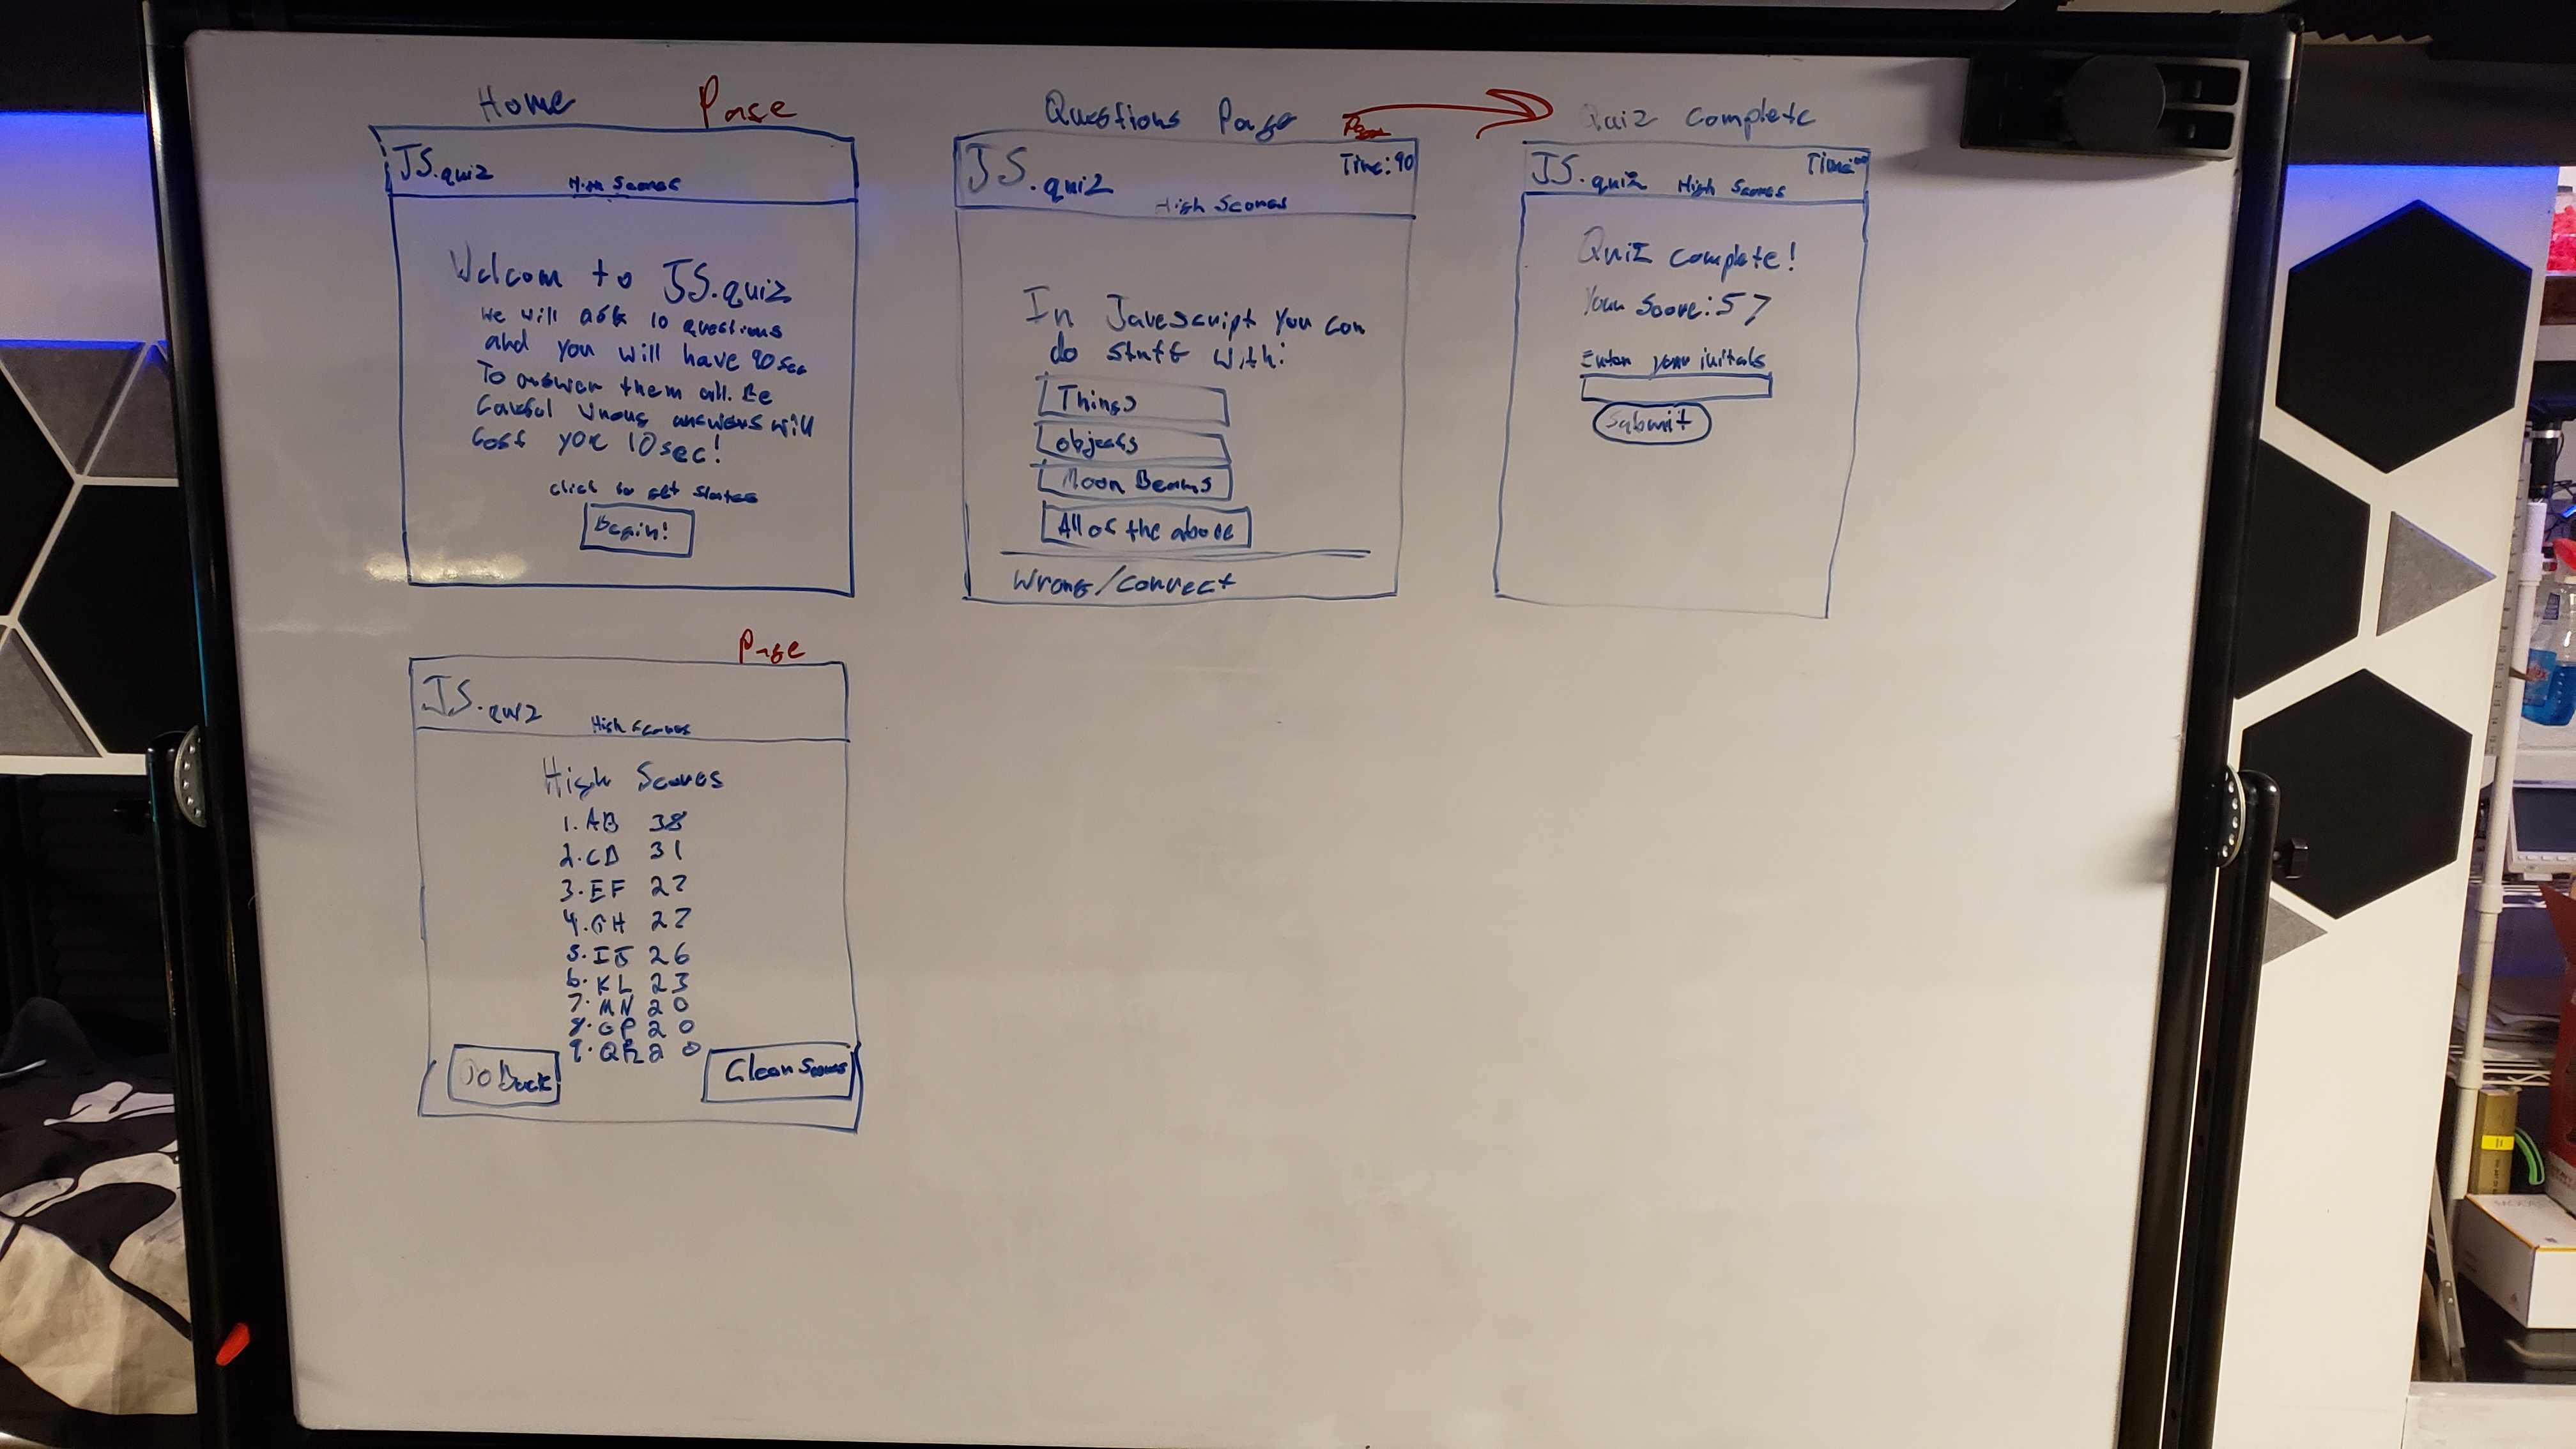 Home Page
JS.quiz
High Scores
Welcom to JS.quiz
we will ask 10 questions
and you will have 90 sec
To answer them all. Be
Careful wrong answers will
Cost you 10 sec!
click to get started
Begin!
Questions Page
JS.quiz
Time: 90
High Scores
In Javascript you can
do stuff with:
Things
objects
Moon Beams
All of the above
Wrong/correct
Quiz complete
JS.quiz High Scores Time:
Quiz complete!
Your Score: 57
Enter your initals
Submit
Page
JS.quiz
High Scores
High Scores
1. AB 38
2. CD 31
3. EF 27
4. GH 27
5. IJ 26
6. KL 23
7. MN 20
8. OP 20
9. QR 20
Go Back
Clear Scores